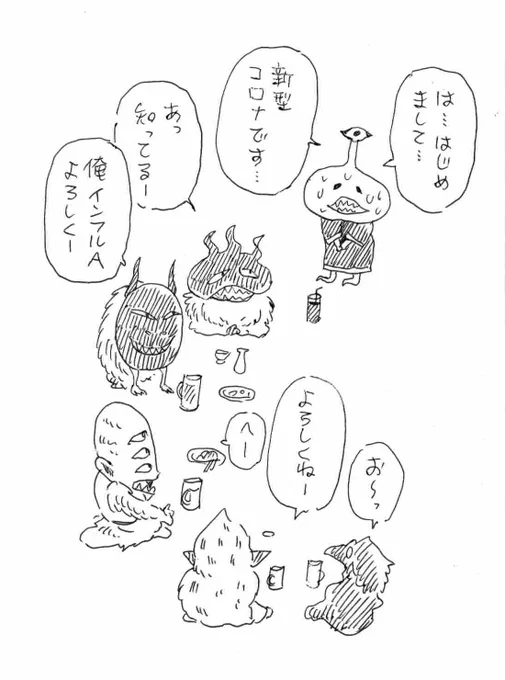 は…はじめ
まして…
新型
コロナです…
あっ
知ってるー
俺インフルA
よろしくー
へー
よろしくねー
お～っ